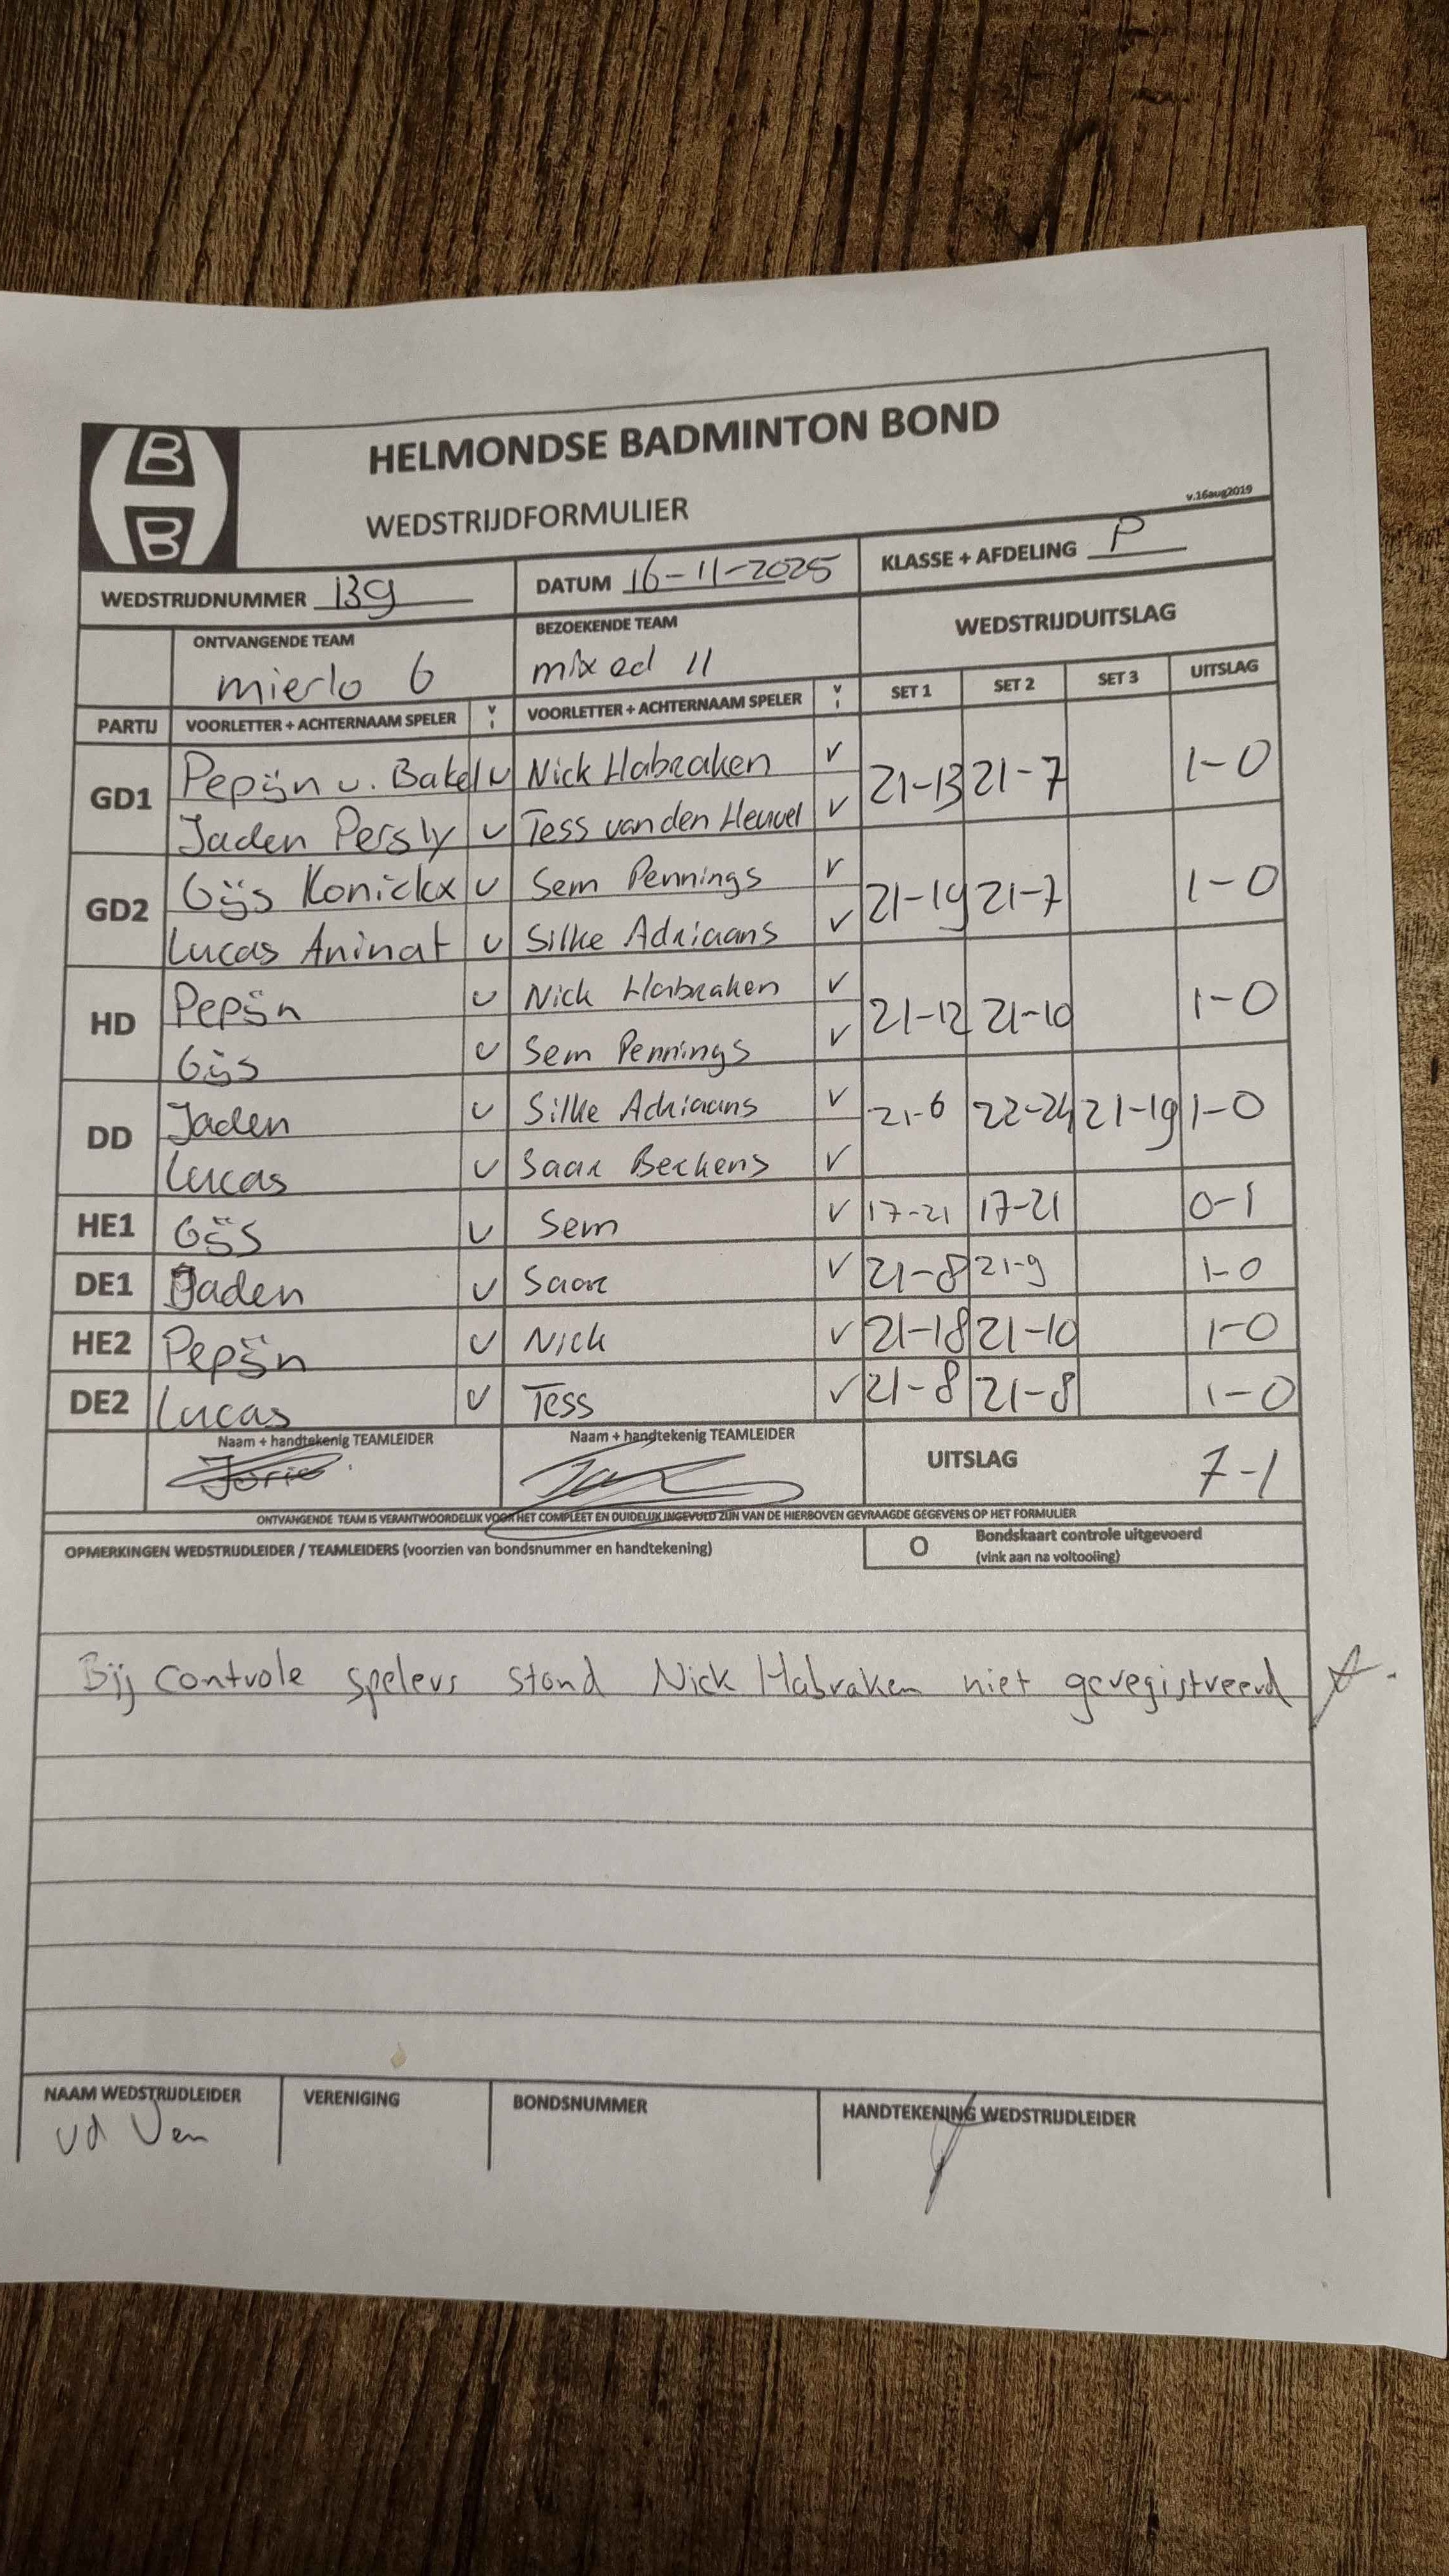 B
B
HELMONDSE BADMINTON BOND
WEDSTRIJDFORMULIER
v.16aug2019
WEDSTRIJDNUMMER 139 DATUM 16-11-2025 KLASSE + AFDELING P
ONTVANGENDE TEAM BEZOEKENDE TEAM WEDSTRIJDUITSLAG
mierlo 6 mixed 11
PARTIJ VOORLETTER + ACHTERNAAM SPELER V I VOORLETTER + ACHTERNAAM SPELER V I SET 1 SET 2 SET 3 UITSLAG
GD1 Pepijn v. Bakel v Nick Habraken v 21-13 21-7 1-0
Jaden Persly v Tess van den Heuvel v
GD2 Gijs Konickx v Sem Pennings v 21-19 21-7 1-0
Lucas Aninat v Silke Adriaans v
HD Pepijn v Nick Habraken v 21-12 21-10 1-0
Gijs v Sem Pennings v
DD Jaden v Silke Adriaans v 21-6 22-24 21-19 1-0
Lucas v Saar Beckens v
HE1 Gijs v Sem v 17-21 17-21 0-1
DE1 Jaden v Saar v 21-8 21-9 1-0
HE2 Pepijn v Nick v 21-18 21-10 1-0
DE2 Lucas v Tess v 21-8 21-8 1-0
Naam + handtekenig TEAMLEIDER Naam + handtekenig TEAMLEIDER UITSLAG 7-1
ONTVANGENDE TEAM IS VERANTWOORDELIJK VOOR HET COMPLEET EN DUIDELIJK INGEVULD ZIJN VAN DE HIERBOVEN GEVRAAGDE GEGEVENS OP HET FORMULIER
OPMERKINGEN WEDSTRIJDLEIDER / TEAMLEIDERS (voorzien van bondsnummer en handtekening) O Bondskaart controle uitgevoerd
(vink aan na voltooiing)
Bij controle spelers stond Nick Habraken niet geregistreerd
NAAM WEDSTRIJDLEIDER VERENIGING BONDSNUMMER HANDTEKENING WEDSTRIJDLEIDER
vd Ven